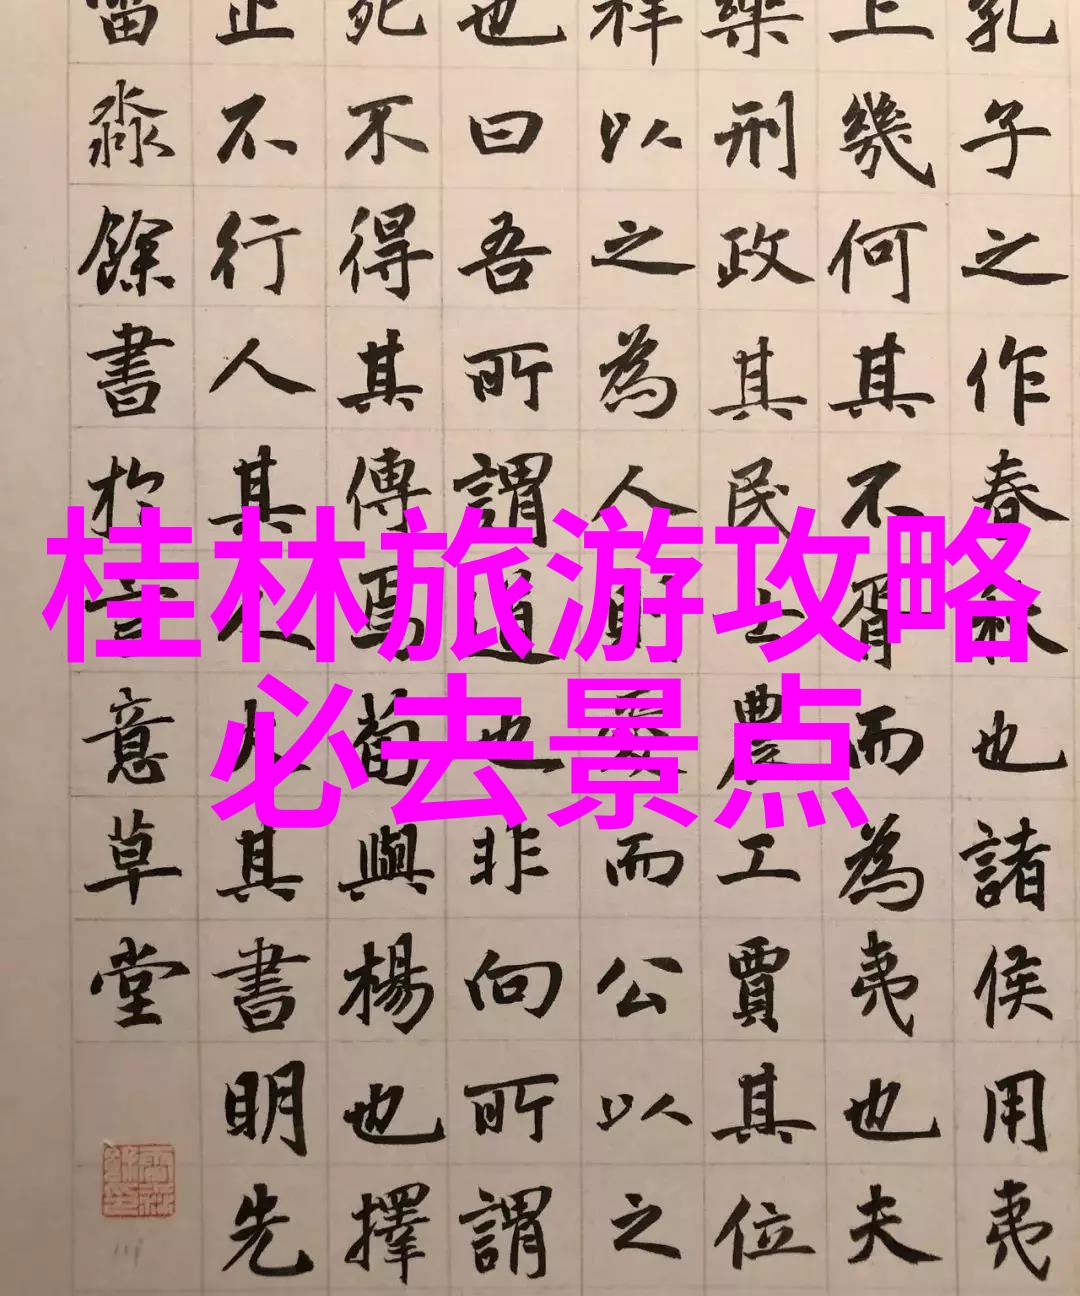 桂林旅游攻略
必去景点
孔子之作春秋也諸侯用夷
上幾何其不胥而為夷也夫
樂刑政其民士農工賈其位
祥以之為人則愛而公以之
也曰吾所謂道也非向所謂
死不得其傳焉荀與楊也擇
止不行人其人火其書明先
淼餘書於意草堂